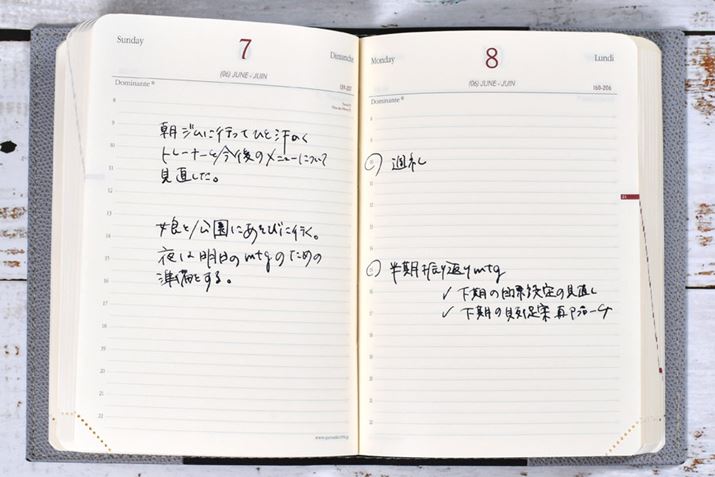 Sunday
7
Dimanche
(06) JUNE - JUIN
159-207
Dominante
8
9
10
11
12
13
14
15
16
17
18
19
20
21
22
朝ジムに行ってひと汗かく
トレーナーと今後のメニューについて
見直した。
娘と公園にあそびに行く。
夜は明日のmtgのための
準備をする。
Monday
8
Lundi
(06) JUNE - JUIN
160-206
Dominante
週礼
半期振り返りmtg
✓ 下期の目標設定の見直し
✓ 下期の